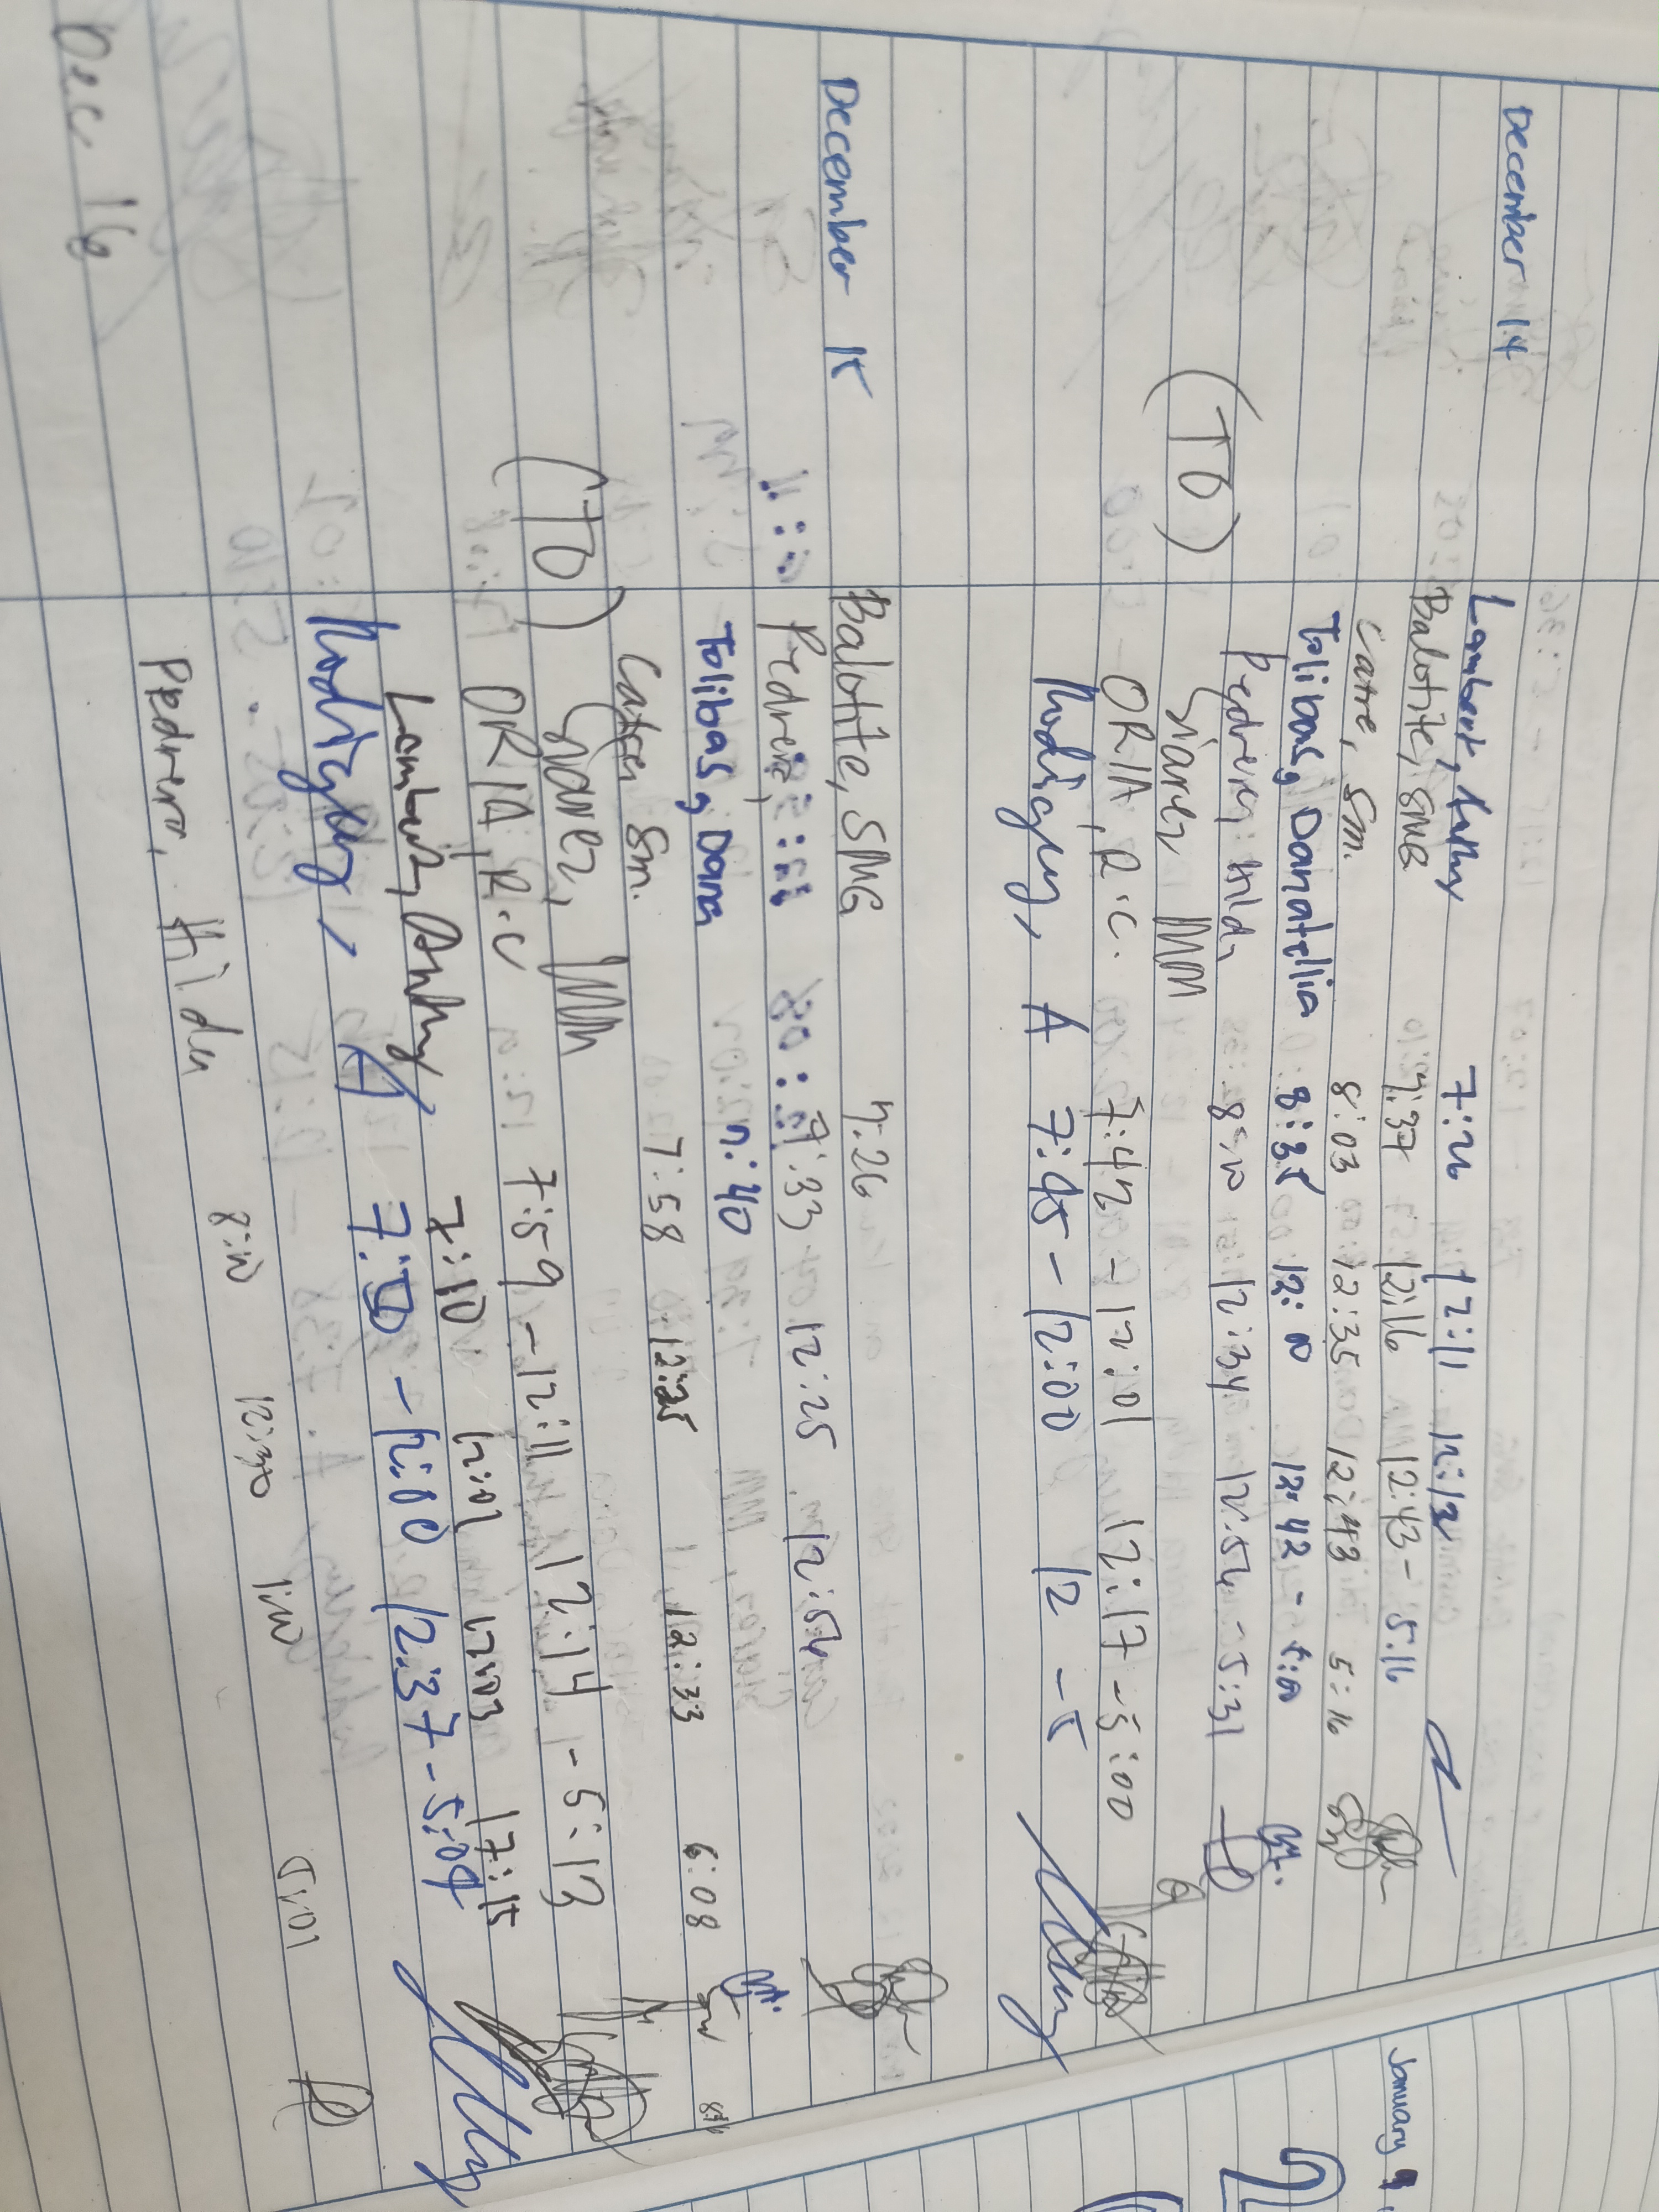 December 14
Lambert, 7:26 12:11 12:12
Balotite, SMG 7:37 12:16 12:43 - 5:16
Catre, Sm. 8:03 12:35 12:43 5:16
Talibas, Danatellia 8:35 12:00 12:42 - 5:00
Pedrero, Hilda 8:10 12:34 12:54 - 5:31
(TO) Gianez,
ORIA, R.C. 7:42 - 12:01 12:17 - 5:00
A 7:45 - 12:00 12 - 5
December 15
Balotite, SMG 7:26
Pedrero, 7:33 12:25 12:54
Talibas, Dana 7:40
Catre, Sm. 7:58 12:25 12:33 6:08
(TO) Gianez,
ORIA, R.C 7:59 - 12:11 12:14 - 5:13
Lambert, 7:10 12:02 12:03 17:15
A 7:50 - 12:00 12:37 - 5:09
Dec 16
Pedrero, Hilda 8:10 12:30 1:00 5:01
January 9